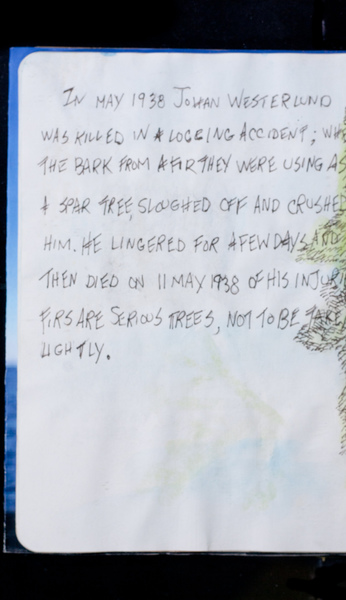 IN MAY 1938 JOHAN WESTERLUND
WAS KILLED IN A LOGGING ACCIDENT; WH
THE BARK FROM A FIR THEY WERE USING AS
A SPAR TREE, SLOUGHED OFF AND CRUSHED
HIM. HE LINGERED FOR A FEW DAYS AND
THEN DIED ON 11 MAY 1938 OF HIS INJURI
FIRS ARE SERIOUS TREES, NOT TO BE TAKE
LIGHTLY.